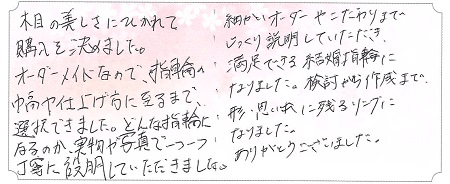 木目の美しさにひかれて
購入を決めました。
オーダーメイドなので、指輪の
巾高や仕上げ方に至るまで、
選択できました。どんな指輪に
なるのか、実物や写真で一つ一つ
丁寧に説明していただきました。
細かいオーダーやこだわりまで
じっくり説明していただき、
満足できる結婚指輪に
なりました。検討から作成まで、
形、思い出に残るリングに
なりました。
ありがとうございました。